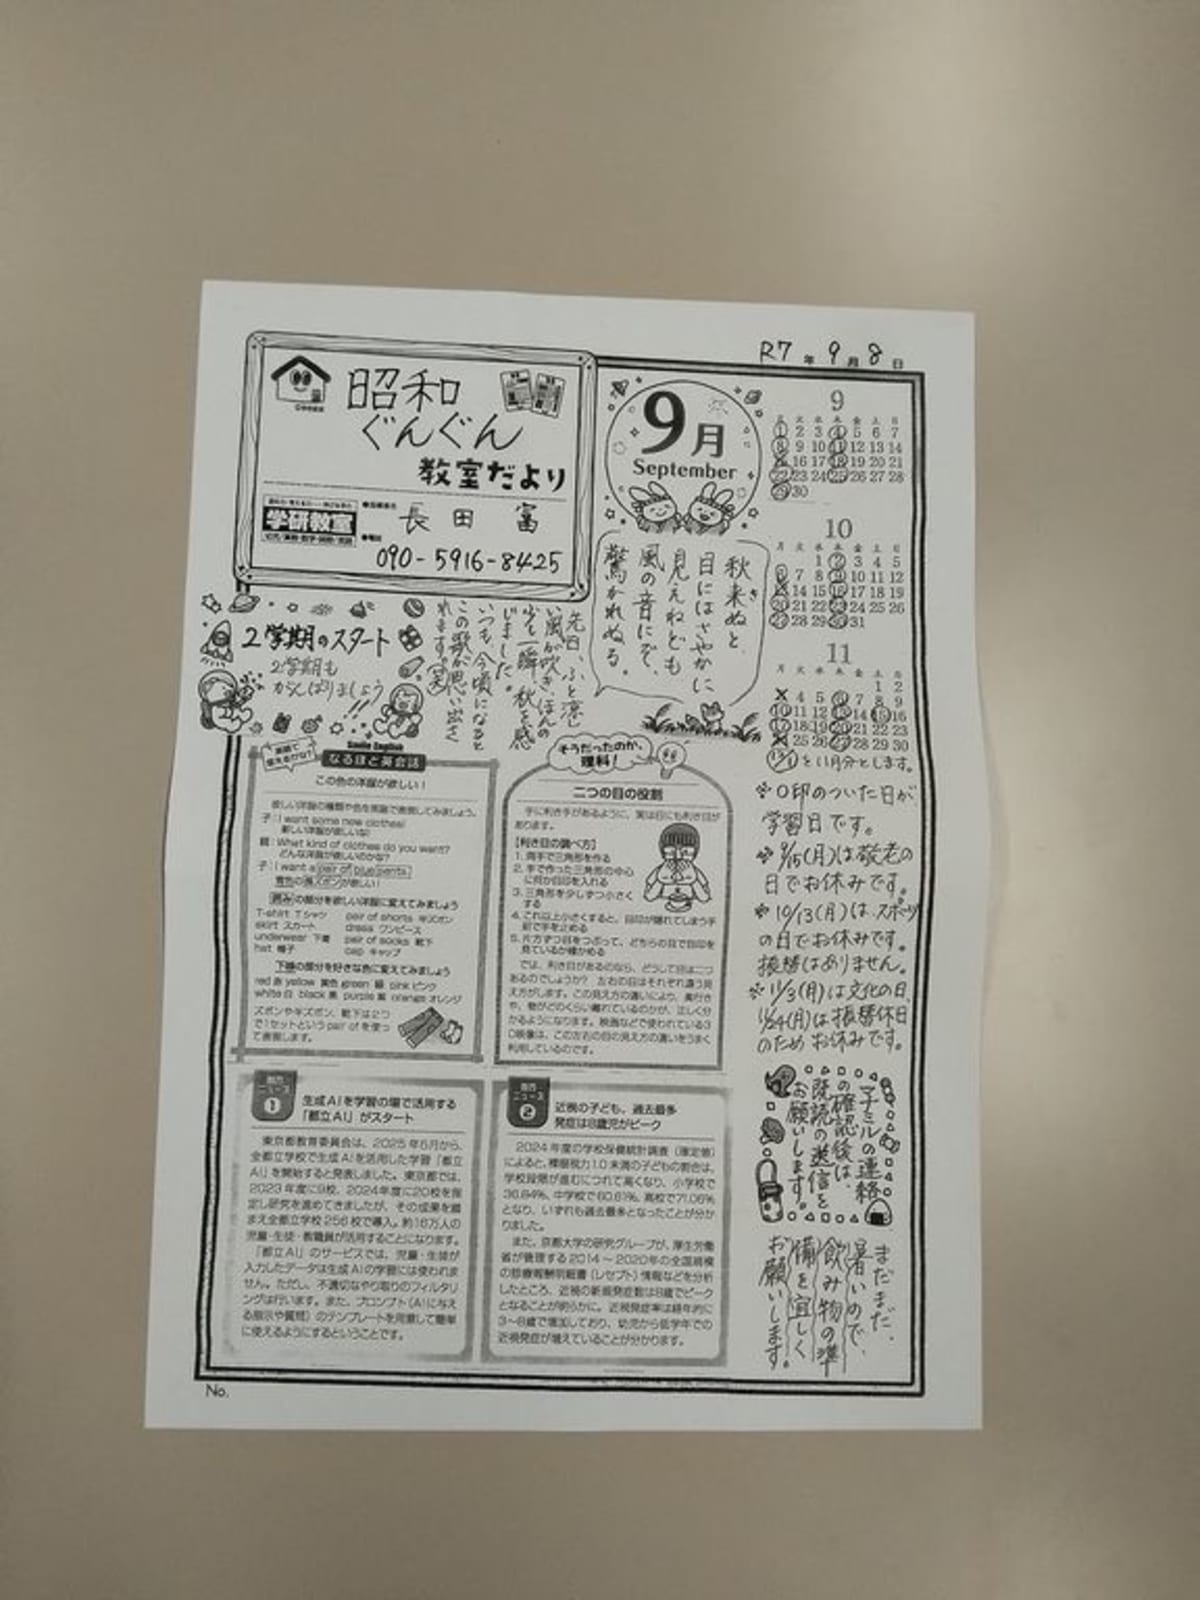 R7年 9月 8日
昭和
ぐんぐん
教室だより
学研教室
長田 富
090-5916-8425
9月
September
秋来ぬと
き
目にはさやかに
見えねども
風の音にぞ、
驚かれぬる。
先日、ふと涼し
い風が吹き、ほんの
少し一瞬、秋を感
じました。
いつも、今頃になると
この歌が思い出さ
れます。
2学期のスタート
2学期も
がんばりましょう!!
9
月 火 水 木 金 土 日
1 2 3 4 5 6 7
8 9 10 11 12 13 14
16 17 18 19 20 21
22 23 24 25 26 27 28
29 30
10
月 火 水 木 金 土 日
1 2 3 4 5
6 7 8 9 10 11 12
14 15 16 17 18 19
20 21 22 23 24 25 26
27 28 29 30 31
11
月 火 水 木 金 土 日
1 2
4 5 6 7 8 9
10 11 12 13 14 15 16
17 18 19 20 21 22 23
25 26 27 28 29 30
12/1を11月分とします。
※○印のついた日が
学習日です。
※9/15(月)は敬老の
日でお休みです。
※10/13(月)は、スポーツ
の日でお休みです。
振替はありません。
※11/3(月)は文化の日、
11/24(月)は振替休日
のためお休みです。
マナミルの連絡
の確認後は、
既読の送信を
お願いします。
まだまだ、
暑いので、
飲み物の準
備を宜しく
お願いします。
Smile English
なるほど英会話
この色の洋服が欲しい!
欲しい洋服の種類や色を英語で表現してみましょう。
子:I want some new clothes!
新しい洋服が欲しいな!
親:What kind of clothes do you want?
どんな洋服が欲しいのかな?
子:I want a pair of blue pants.
青色の長ズボンが欲しい!
囲みの部分を欲しい洋服に変えてみましょう
T-shirt Tシャツ pair of shorts 半ズボン
skirt スカート dress ワンピース
underwear 下着 pair of socks 靴下
hat 帽子 cap キャップ
下線の部分を好きな色に変えてみましょう
red 赤 yellow 黄色 green 緑 pink ピンク
white 白 black 黒 purple 紫 orange オレンジ
ズボンや半ズボン、靴下は2つ
で1セットという pair of を使っ
て表現します。
そうだったのか、
理科!
二つの目の役割
手に利き手があるように、実は目にも利き目が
あります。
【利き目の調べ方】
1. 両手で三角形を作る
2. 手で作った三角形の中心
に何か目印を入れる
3. 三角形を少しずつ小さく
する
4. これ以上小さくすると、目印が隠れてしまう手
前で手を止める
5. 片方ずつ目をつぶって、どちらの目で目印を
見ているか確かめる
では、利き目があるのなら、どうして目は二つ
あるのでしょうか? 左右の目はそれぞれ違う見
え方がします。この見え方の違いにより、奥行き
や、物がどのくらい離れているのかが、正しく分
かるようになります。映画などで使われている3
D映像は、この左右の目の見え方の違いをうまく
利用しているのです。
ニュース
1
生成AIを学習の場で活用する
「都立AI」がスタート
東京都教育委員会は、2025年5月から、
全都立学校で生成AIを活用した学習「都立
AI」を開始すると発表しました。東京都では、
2023年度に9校、2024年度に20校を指
定し研究を進めてきましたが、その成果を踏
まえ全都立学校256校で導入。約16万人の
児童・生徒・教職員が活用することになります。
「都立AI」のサービスでは、児童・生徒が
入力したデータは生成AIの学習には使われま
せん。ただし、不適切なやり取りのフィルタリ
ングは行います。また、プロンプト(AIに与え
る指示や質問)のテンプレートを用意して簡単
に使えるようにするということです。
ニュース
2
近視の子ども、過去最多
発症は8歳児がピーク
2024年度の学校保健統計調査(確定値)
によると、裸眼視力1.0未満の子どもの割合は、
学校段階が進むにつれて高くなり、小学校で
36.84%、中学校で60.61%、高校で71.06%
となり、いずれも過去最多となったことが分か
りました。
また、京都大学の研究グループが、厚生労働
省が管理する2014~2020年の全国規模
の診療報酬明細書(レセプト)情報などを分析
したところ、近視の新規発症数は8歳でピーク
となることが明らかに。近視発症率は経年的に
3~8歳で増加しており、幼児から低学年での
近視発症が増えていることが分かります。
No.